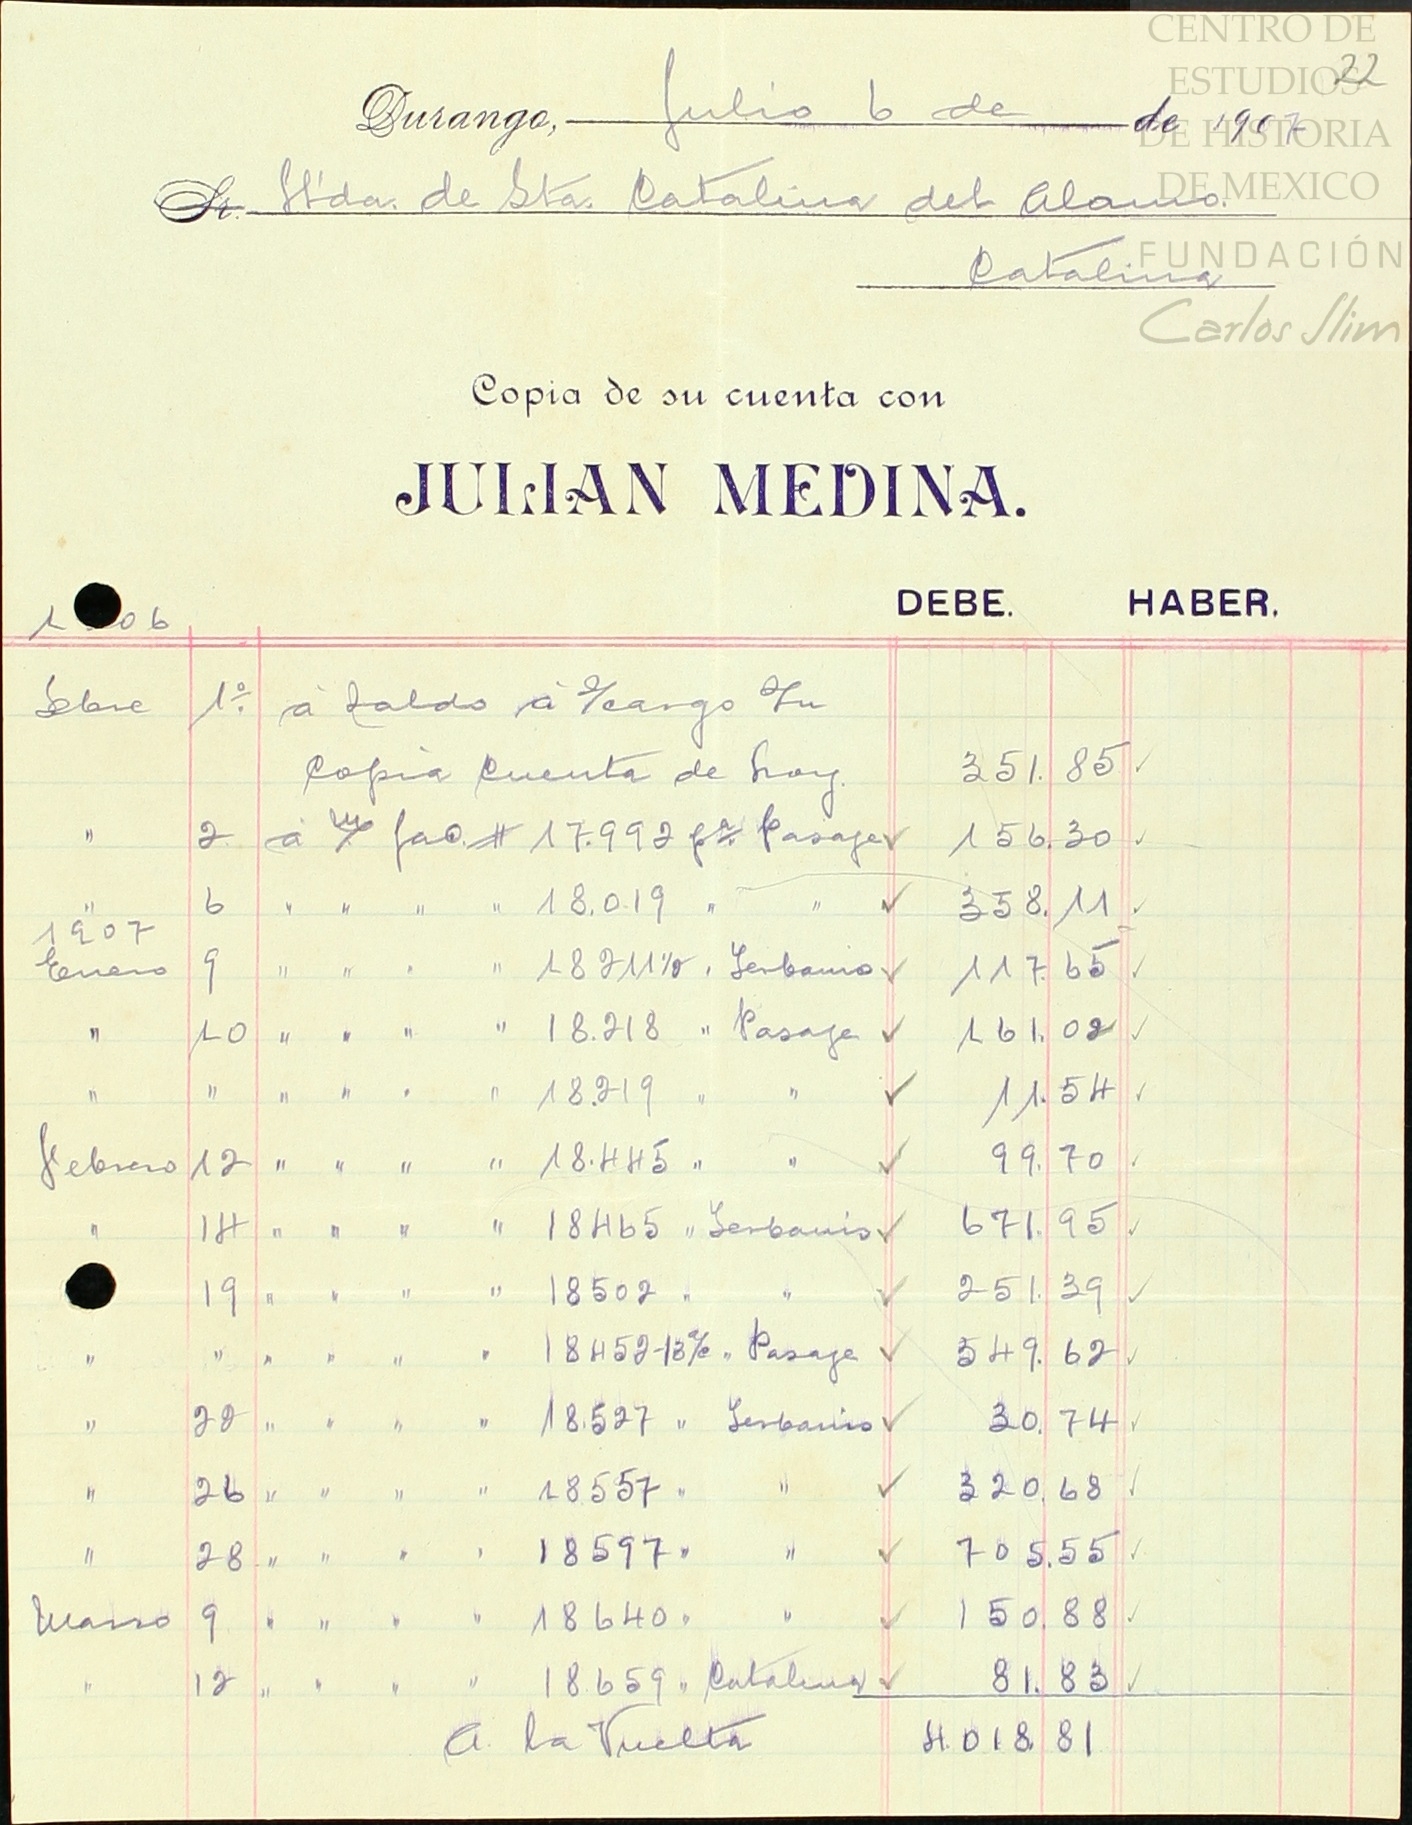 CENTRO DE
ESTUDIOS
DE HISTORIA
DE MEXICO
FUNDACIÓN
Carlos Slim
22
Durango, Julio 6 de de 1907
Sr. Hda. de Sta. Catalina del Alamo.
Catalina
Copia de su cuenta con
JULIAN MEDINA.
DEBE. HABER.
1 06
1º. á Saldo á
Copia Cuenta de hoy. 351.85 ✓
" 2 á m/ fac. # 17.992 pa. Pasaje ✓ 156.30 ✓
" 6 " " " " 18.019 " " ✓ 358.11 ✓
1907
Enero 9 " " " " 18211½ " Yerbanis ✓ 117.65 ✓
" 10 " " " " 18.218 " Pasaje ✓ 161.02 ✓
" " " " " " 18.219 " " ✓ 11.54 ✓
Febrero 12 " " " " 18.445 " " ✓ 99.70 ✓
" 14 " " " " 18465 " Yerbanis ✓ 671.95 ✓
19 " " " " 18502 " " ✓ 251.39 ✓
" " " " " " 18452 " Pasaje ✓ 549.62 ✓
" 22 " " " " 18.527 " Yerbanis ✓ 30.74 ✓
" 26 " " " " 18557 " " ✓ 320.68 ✓
" 28 " " " " 18597 " " ✓ 705.55 ✓
Marso 9 " " " " 18640 " " ✓ 150.88 ✓
" 12 " " " " 18659 " Catalina ✓ 81.83 ✓
A la Vuelta 4.018.81